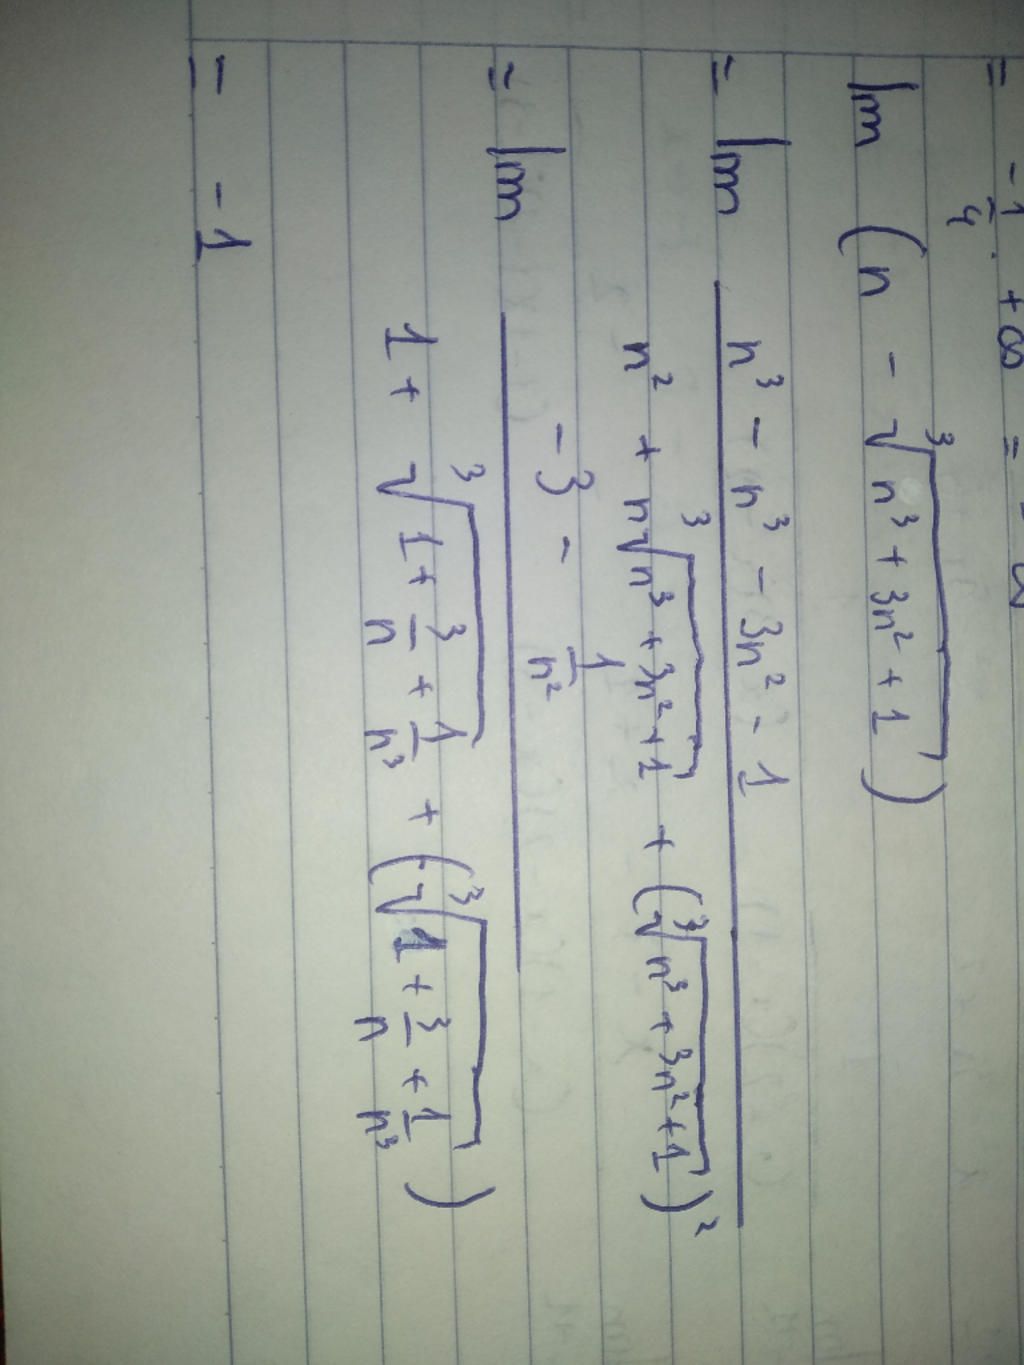 = -1/4 . +∞ = -∞
lim (n - ∛(n³ + 3n² + 1))
= lim (n³ - n³ - 3n² - 1) / (n² + n∛(n³ + 3n² + 1) + (∛(n³ + 3n² + 1))²)
= lim (-3 - 1/n²) / (1 + ∛(1 + 3/n + 1/n³) + (∛(1 + 3/n + 1/n³))
= -1